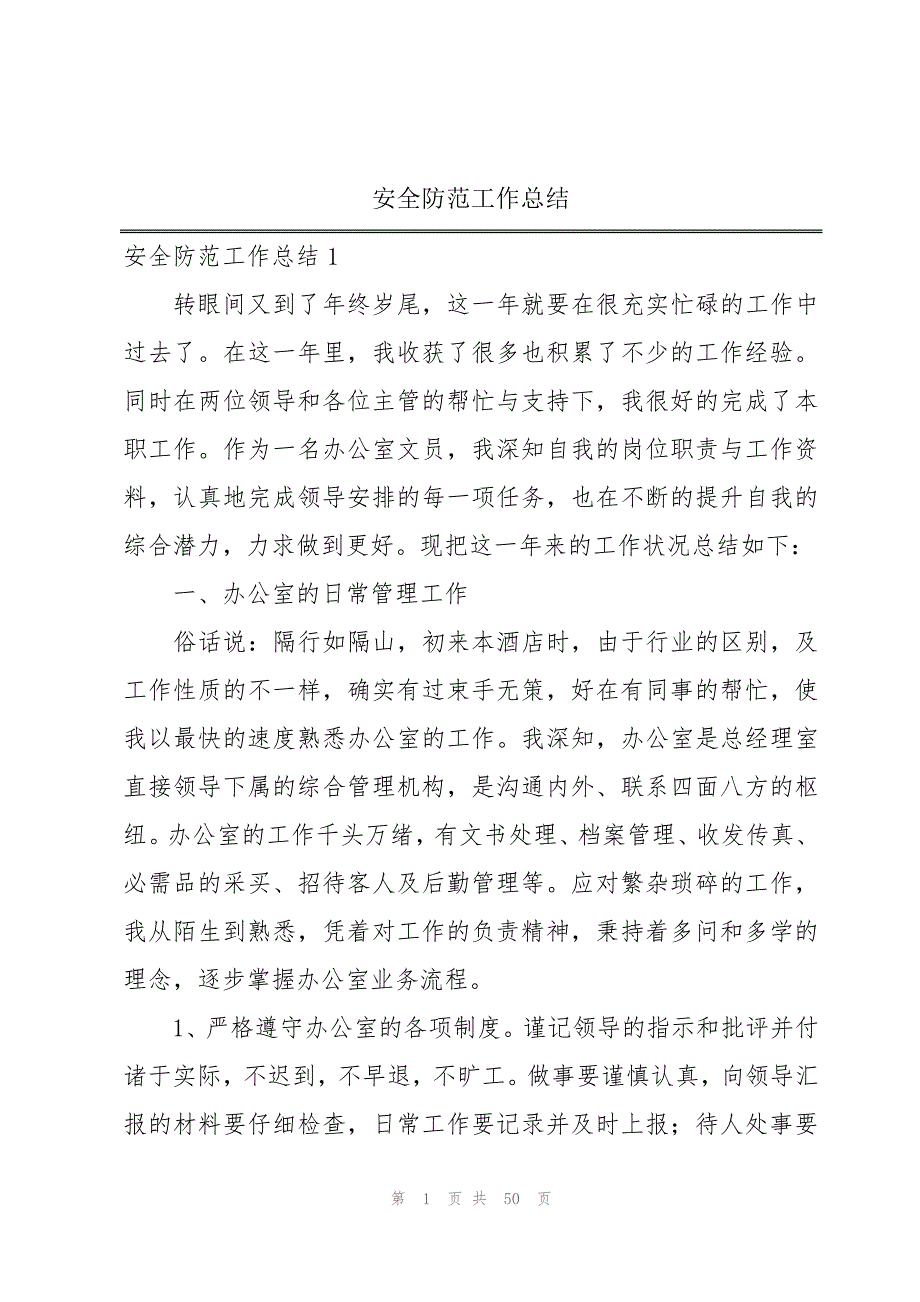 安全防范工作总结
安全防范工作总结 1
转眼间又到了年终岁尾，这一年就要在很充实忙碌的工作中
过去了。在这一年里，我收获了很多也积累了不少的工作经验。
同时在两位领导和各位主管的帮忙与支持下，我很好的完成了本
职工作。作为一名办公室文员，我深知自我的岗位职责与工作资
料，认真地完成领导安排的每一项任务，也在不断的提升自我的
综合潜力，力求做到更好。现把这一年来的工作状况总结如下：
一、办公室的日常管理工作
俗话说：隔行如隔山，初来本酒店时，由于行业的区别，及
工作性质的不一样，确实有过束手无策，好在有同事的帮忙，使
我以最快的速度熟悉办公室的工作。我深知，办公室是总经理室
直接领导下属的综合管理机构，是沟通内外、联系四面八方的枢
纽。办公室的工作千头万绪，有文书处理、档案管理、收发传真、
必需品的采买、招待客人及后勤管理等。应对繁杂琐碎的工作，
我从陌生到熟悉，凭着对工作的负责精神，秉持着多问和多学的
理念，逐步掌握办公室业务流程。
1、严格遵守办公室的各项制度。谨记领导的指示和批评并付
诸于实际，不迟到，不早退，不旷工。做事要谨慎认真，向领导汇
报的材料要仔细检查，日常工作要记录并及时上报；待人处事要
第 1 页 共 50 页